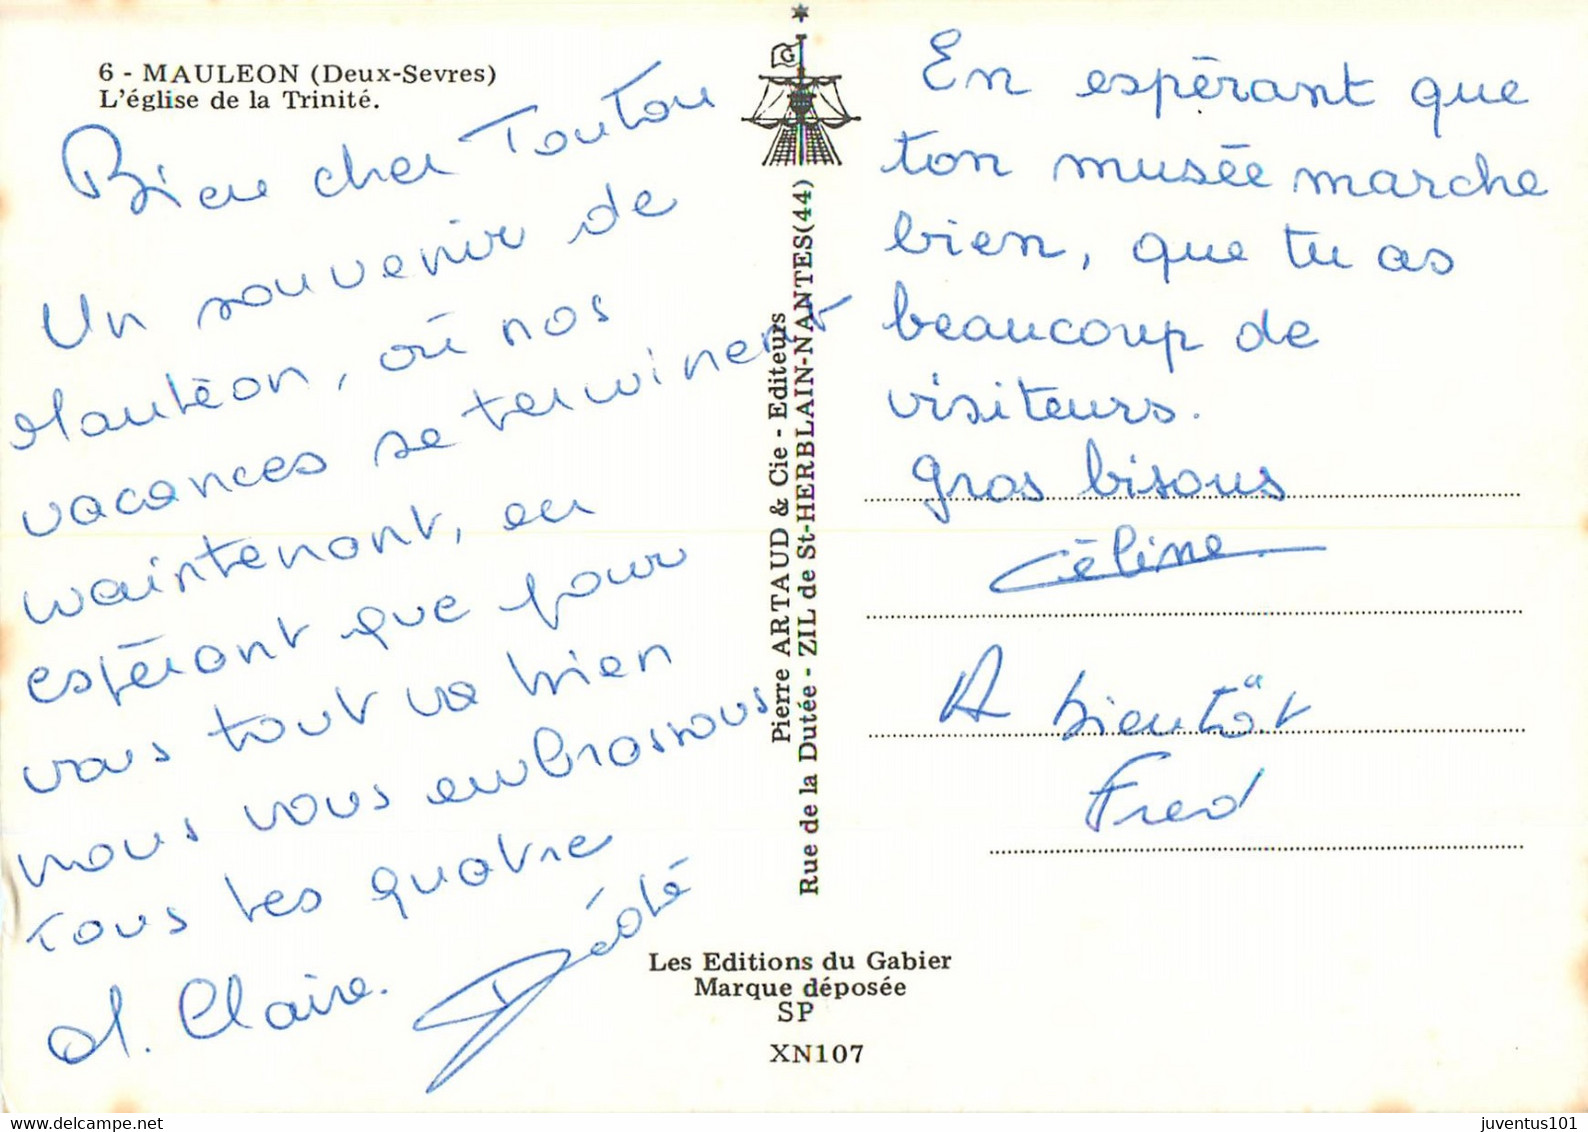 6 - MAULEON (Deux-Sevres)
L'église de la Trinité.
Bien cher Tonton
Un souvenir de
Mauléon, où nos
vacances se terminent
maintenant, en
espérant que pour
vous tout va bien
nous vous embrassons
tous les quatre
M. Claire. Dédé
Pierre ARTAUD & Cie - Editeurs
Rue de la Dutée - ZIL de St-HERBLAIN-NANTES(44)
G
En espérant que
ton musée marche
bien, que tu as
beaucoup de
visiteurs.
gros bisous
Céline
A bientôt
Fred
Les Editions du Gabier
Marque déposée
SP
XN107
www.delcampe.net
juventus101